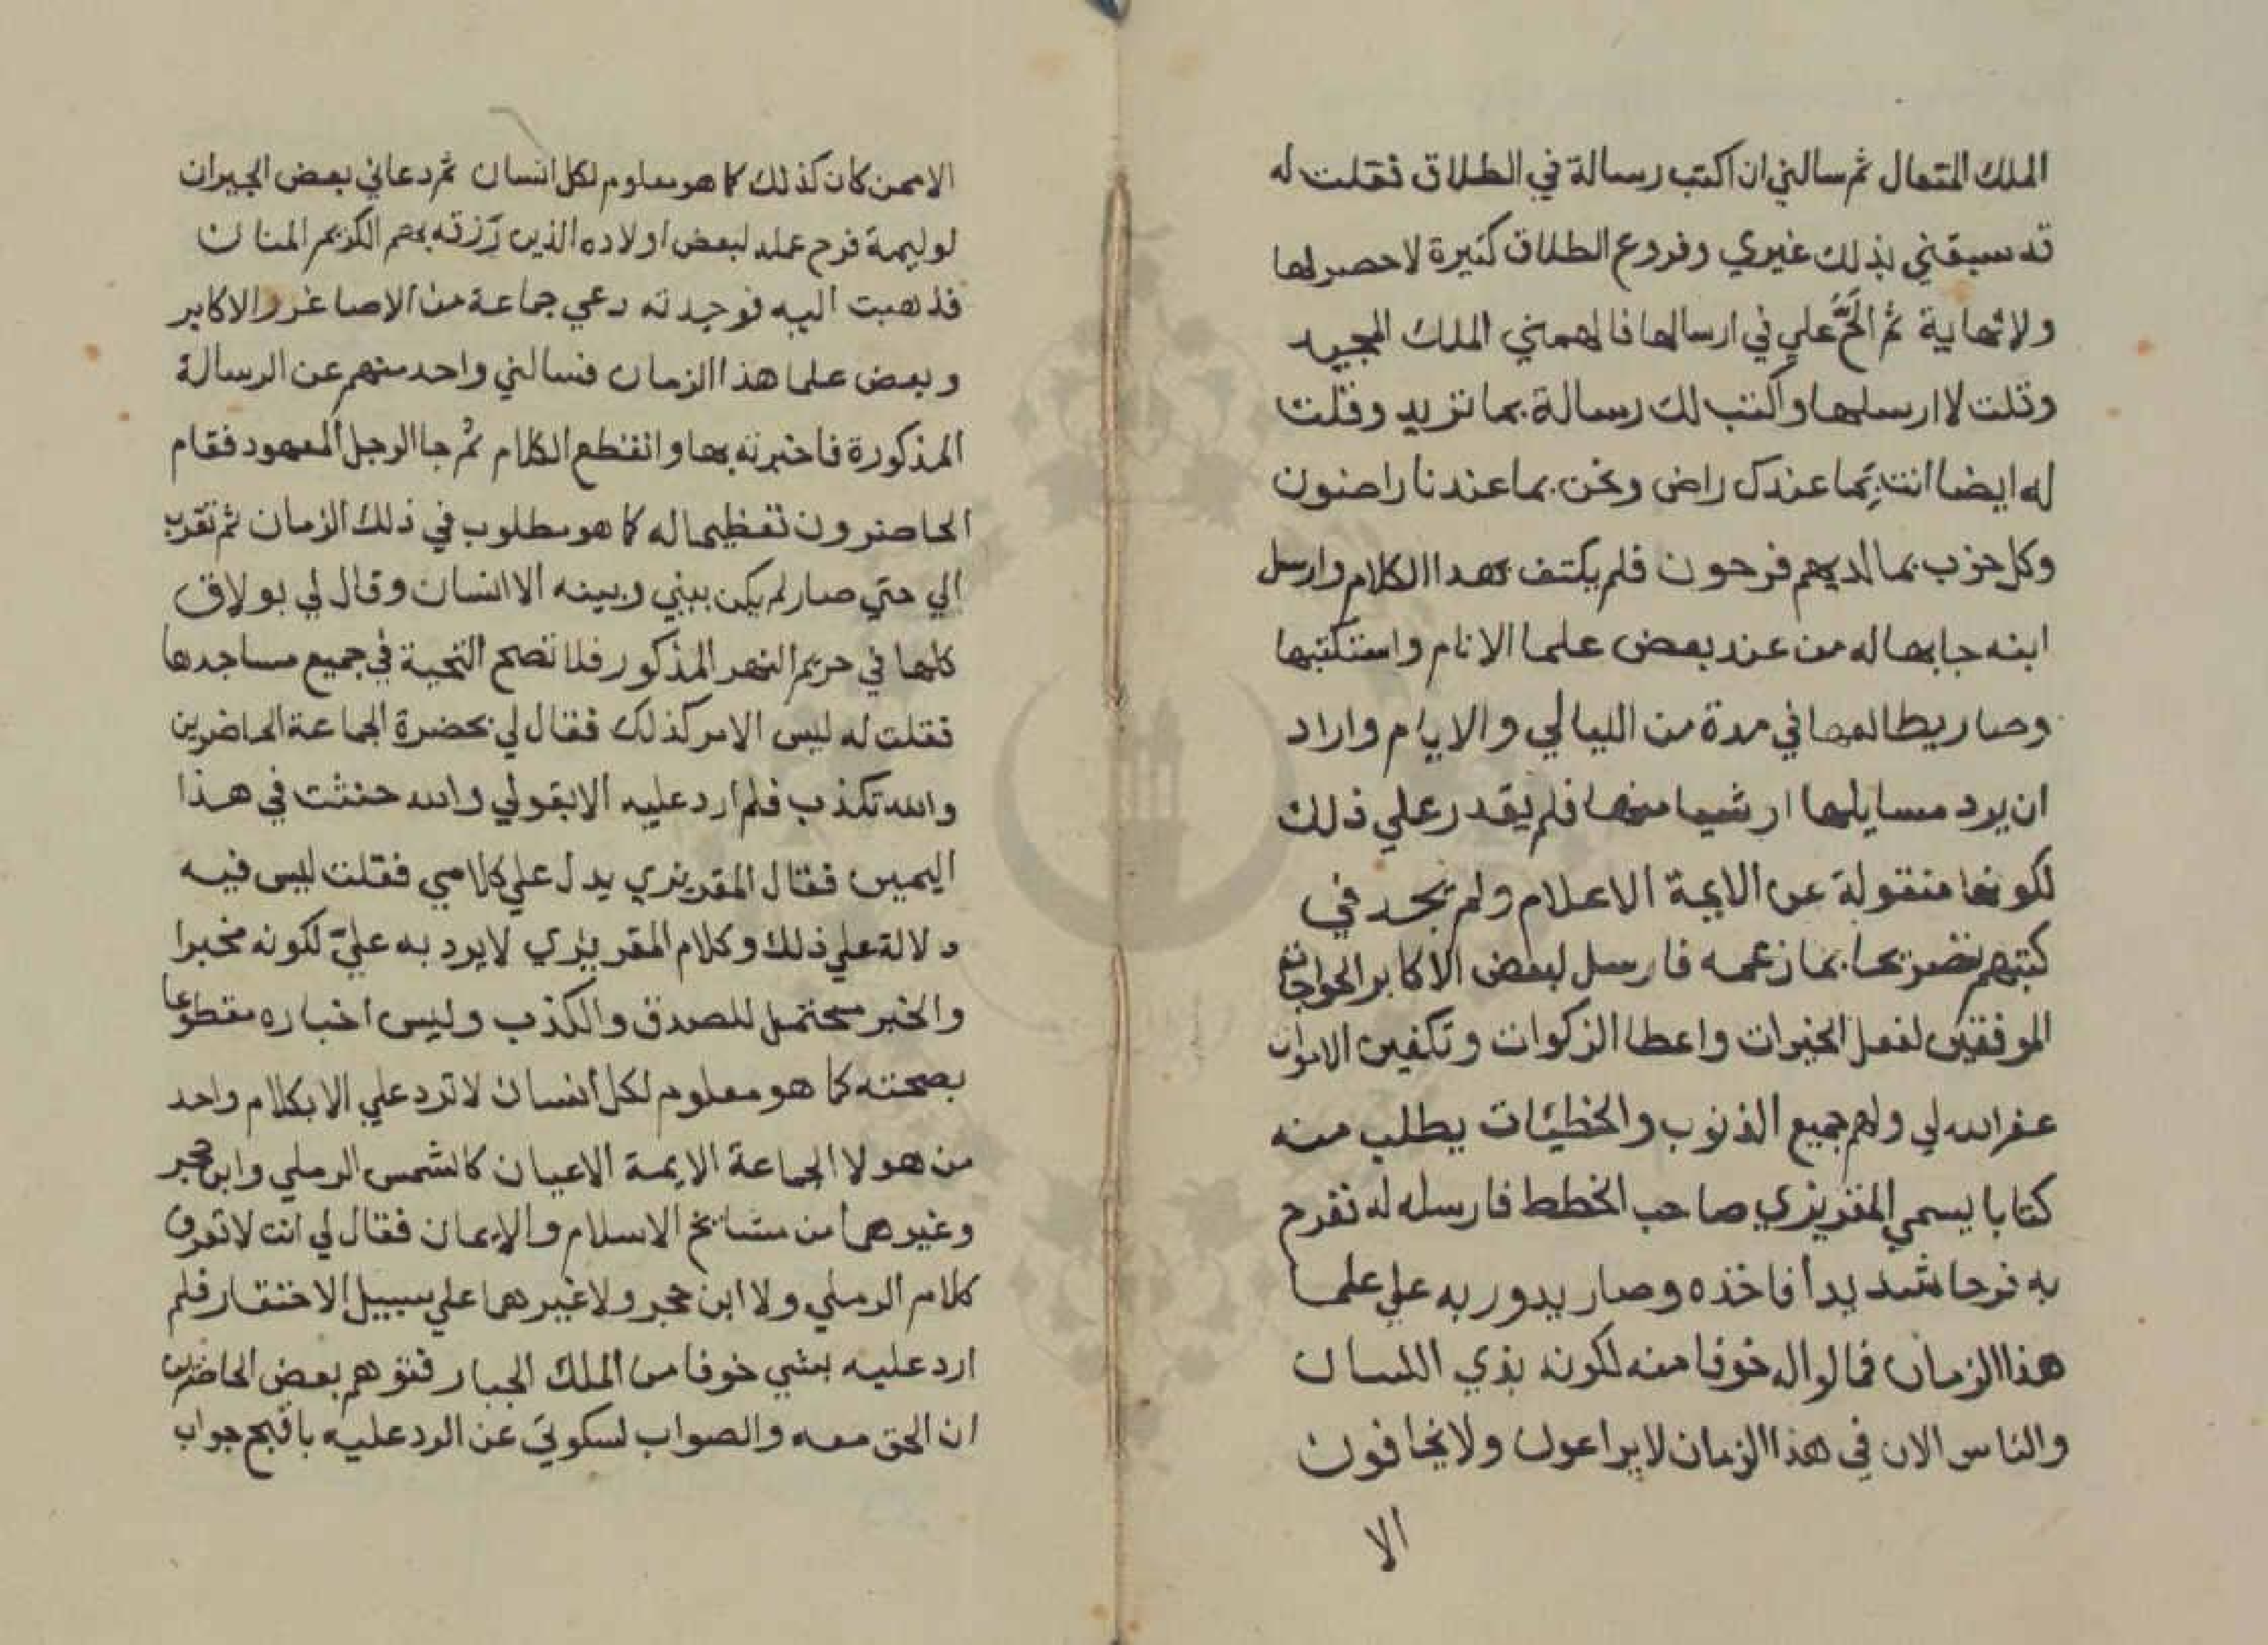 الملك المتعال ثم سالني ان اكتب رسالة في الطلاق فقلت له
قد سبقني بذلك غيري وفروع الطلاق كثيرة لا حصر لها
ولا نهاية ثم الَحَّ علي في ارسالها فالهمني الملك المجيد
وقلت لا ارسلها واكتب لك رسالة بما تريد وقلت
له ايضا انت بما عندك راض ونحن بما عندنا راضون
وكل حزب بما لديهم فرحون فلم يكتف بهذا الكلام وارسل
ابنه جا بها له من عند بعض علما الانام واستكتبها
وصار يطالعها في مدة من الليالي والايام واراد
ان يرد مسايلها او شيا منها فلم يقدر علي ذلك
لكونها منقولة عن الايمة الاعلام ولم يجد في
كتبهم تصريحا بما زعمه فارسل لبعض الاكابر الخواجات
الموفقين لفعل الخيرات واعطا الزكوات وتكفين الاموات
غفر الله لي ولهم جميع الذنوب والخطيئات يطلب منه
كتابا يسمي المقريزي صاحب الخطط فارسله له ففرح
به فرحا شديدا فاخذه وصار يدور به علي علما
هذا الزمان فمالوا له خوفا منه لكونه بذي اللسان
والناس الان في هذا الزمان لا يراعون ولا يخافون
الا
الا ممن كان كذلك كما هو معلوم لكل انسان ثم دعاني بعض الجيران
لوليمة فرح عمله لبعض اولاده الذين رزقه بهم الكريم المنان
فذهبت اليه فوجدته دعي جماعة من الاصاغر والاكابر
وبعض علما هذا الزمان فسالني واحد منهم عن الرسالة
المذكورة فاخبرته بها وانقطع الكلام ثم جا الرجل المعهود فقام
الحاضرون تعظيما له كما هو مطلوب في ذلك الزمان ثم تقرب
الي حتي صار لم يكن بيني وبينه الا انسان وقال لي بولاق
كلها في حريم النهر المذكور فلا تصح التحية في جميع مساجدها
فقلت له ليس الامر كذلك فقال لي بحضرة الجماعة الحاضرين
والله تكذب فلم ارد عليه الا بقولي والله حنثت في هذا
اليمين فقال المقريزي يدل علي كلامي فقلت ليس فيه
دلالة علي ذلك وكلام المقريزي لا يرد به عليّ لكونه مخبرا
والخبر محتمل للصدق والكذب وليس اخباره مقطوعا
بصحته كما هو معلوم لكل انسان لا ترد علي الا بكلام واحد
من هولا الجماعة الايمة الاعيان كالشمس الرملي وابن حجر
وغيرهما من مشايخ الاسلام والايمان فقال لي انت لا تعرف
كلام الرملي ولا ابن حجر ولا غيرهما علي سبيل الاحتقار فلم
ارد عليه بشي خوفا من الملك الجبار فتوهم بعض الحاضرين
ان الحق معه والصواب لسكوتي عن الرد عليه باقبح جواب